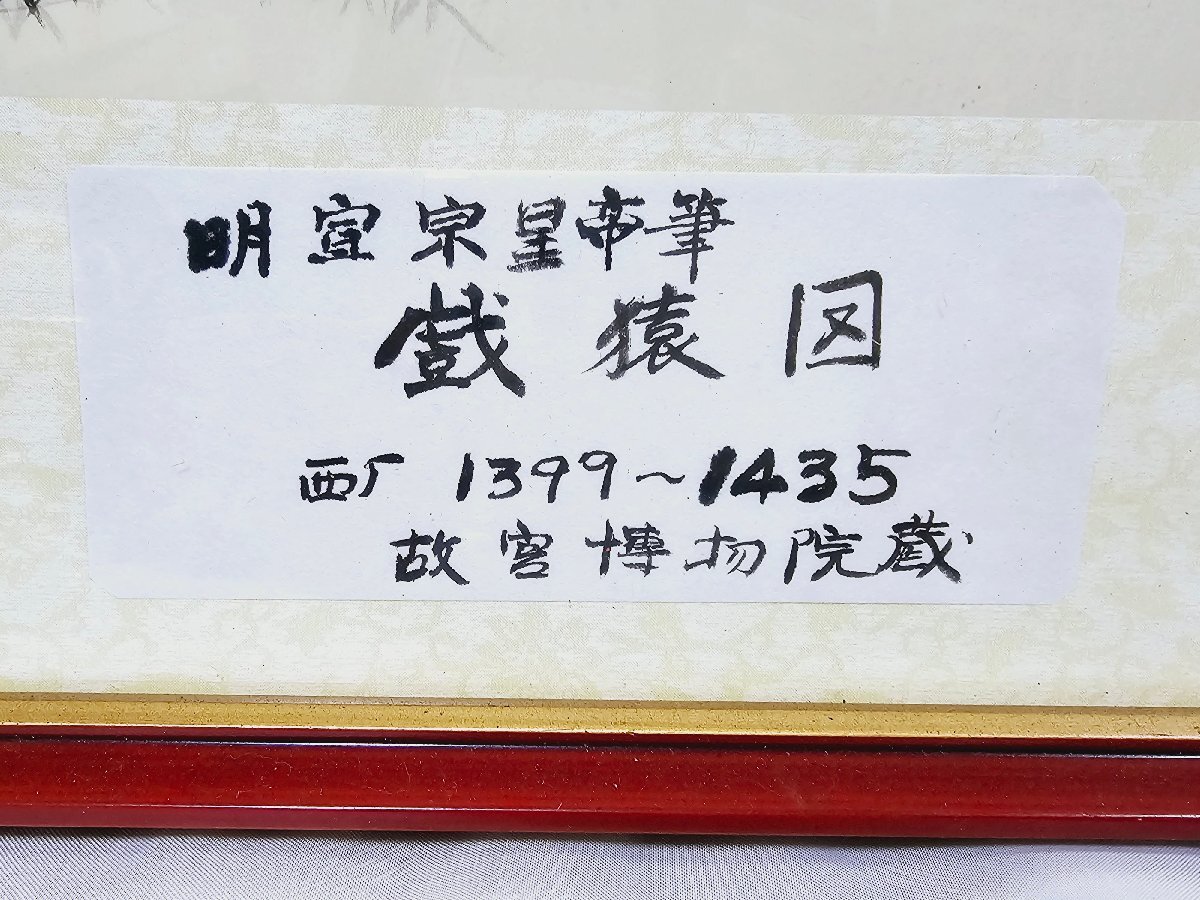 明宣宗皇帝筆
戯猿図
西厂 1399～1435
故宮博物院蔵